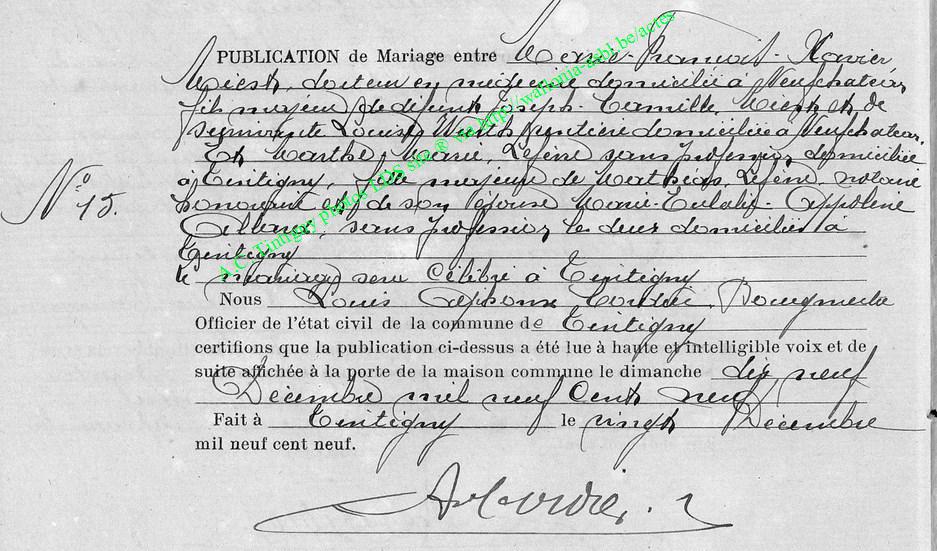 PUBLICATION de Mariage entre François-Xavier
docteur en médecine domicilié à Neufchateau,
fils majeur de défunt Joseph-Camille et de
survivante Louise rentière domiciliée à Neufchateau.
Et Marthe Marie Lefèvre sans profession domiciliée
à Tintigny, fille majeure de Mathias Lefèvre notaire
honoraire et de son épouse Marie-Eulalie-Appoline
sans profession les deux domiciliés à
Tintigny
le mariage sera célébré à Tintigny
N° 15.
Nous Louis Alphonse Bourgmestre
Officier de l'état civil de la commune de Tintigny
certifions que la publication ci-dessus a été lue à haute et intelligible voix et de
suite affichée à la porte de la maison commune le dimanche dix neuf
Décembre mil neuf cent neuf
Fait à Tintigny le vingt Décembre
mil neuf cent neuf.
A.C. Tintigny photos LDS site ® via http://wallonia-asbl.be/actes